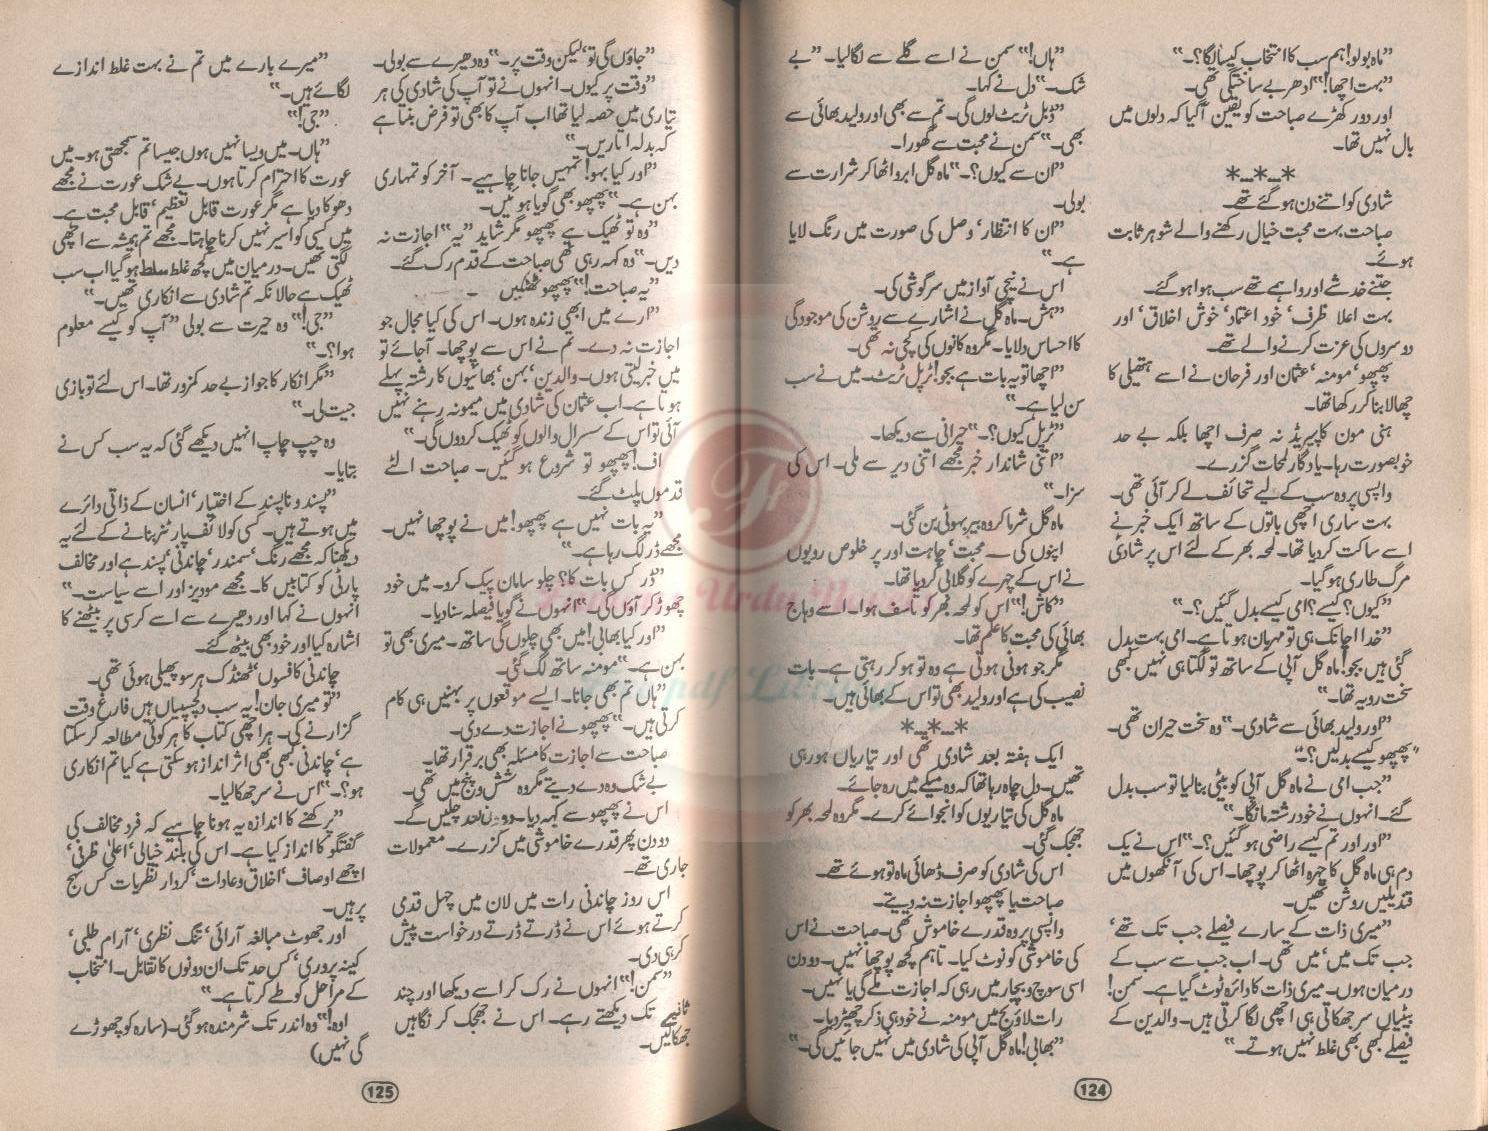 "ماہ بولو! ہم سب کا انتخاب کیسا لگا؟۔"
"بہت اچھا!" ادھر بے ساختگی تھی۔
اور دور کھڑے صباحت کو یقین آگیا کہ دلوں میں
بال نہیں تھا۔
*_*_*
شادی کو اتنے دن ہو گئے تھے۔
صباحت بہت محبت خیال رکھنے والے شوہر ثابت
ہوئے۔
جتنے خدشے اور واہمے تھے سب ہوا ہو گئے۔
بہت اعلا ظرف، خود اعتماد، خوش اخلاق، اور
دوسروں کی عزت کرنے والے تھے۔
پھپھو، مومنہ، عثمان اور فرحان نے اسے ہتھیلی کا
چھالا بنا کر رکھا تھا۔
ہنی مون کا پیریڈ نہ صرف اچھا بلکہ بے حد
خوبصورت رہا۔ یادگار لمحات گزرے۔
واپسی پر وہ سب کے لیے تحائف لے کر آئی تھی۔
بہت ساری اچھی باتوں کے ساتھ ایک خبر نے
اسے ساکت کر دیا تھا۔ لمحہ بھر کے لئے اس پر شادیٔ
مرگ طاری ہو گیا۔
"کیوں؟ کیسے؟ امی کیسے بدل گئیں؟۔"
"خدا اچانک ہی تو مہربان ہوتا ہے۔ امی بہت بدل
گئی ہیں بجو! ماہ گل آپی کے ساتھ تو لگتا ہی نہیں کبھی
سخت رویہ تھا۔"
"اور ولید بھائی سے شادی۔" وہ سخت حیران تھی۔
"پھپھو کیسے بدلیں؟۔"
"جب امی نے ماہ گل آپی کو بیٹی بنا لیا تو سب بدل
گئے۔ انہوں نے خود رشتہ مانگا۔"
"اور اور تم کیسے راضی ہو گئیں؟۔" اس نے یک
دم ہی ماہ گل کا چہرہ اٹھا کر پوچھا۔ اس کی آنکھوں میں
قندیلیں روشن تھیں۔
"میری ذات کے سارے فیصلے جب تک تھے،
جب تک میں، میں تھی۔ اب جب سے سب کے
درمیان ہوں۔ میری ذات کا دائرہ ٹوٹ گیا ہے۔ سمن!
بیٹیاں سر جھکاتی ہی اچھی لگا کرتی ہیں۔ والدین کے
فیصلے کبھی بھی غلط نہیں ہوتے۔"
"ہاں!" سمن نے اسے گلے سے لگا لیا۔ "بے
شک۔" دل نے کہا۔
"ڈبل ٹریٹ لوں گی۔ تم سے بھی اور ولید بھائی سے
بھی۔" سمن نے محبت سے گھورا۔
"ان سے کیوں؟۔" ماہ گل ابرو اٹھا کر شرارت سے
بولی۔
"ان کا انتظار، وصل کی صورت میں رنگ لایا
ہے۔"
اس نے نیچی آواز میں سرگوشی کی۔
"ہش۔ ماہ گل نے اشارے سے روشن کی موجودگی
کا احساس دلایا۔ مگر وہ کانوں کی کچی نہ تھی۔
"اچھا تو یہ بات ہے بجو! ٹرپل ٹریٹ۔ میں نے سب
سن لیا ہے۔"
"ٹرپل کیوں؟۔" حیرانی سے دیکھا۔
"اتنی شاندار خبر مجھے اتنی دیر سے ملی۔ اس کی
سزا۔"
ماہ گل شرما کر وہ بیر بہوٹی بن گئی۔
اپنوں کی _ محبت، چاہت اور پر خلوص رویوں
نے اس کے چہرے کو گلابی کر دیا تھا۔
"کاش!" اس کو لمحہ بھر کو تاسف ہوا۔ اسے وہاج
بھائی کی محبت کا علم تھا۔
مگر جو ہونی ہوتی ہے وہ تو ہو کر رہتی ہے۔ بات
نصیب کی ہے اور ولید بھی تو اس کے بھائی ہیں۔
*_*_*
ایک ہفتہ بعد شادی تھی اور تیاریاں ہو رہی
تھیں۔ دل چاہ رہا تھا کہ وہ میکے میں رہ جائے۔
ماہ گل کی تیاریوں کو انجوائے کرے۔ مگر وہ لمحہ بھر کو
جھجک گئی۔
اس کی شادی کو صرف ڈھائی ماہ تو ہوئے تھے۔
صباحت یا پھپھو اجازت نہ دیتے۔
واپسی پر وہ قدرے خاموش تھی۔ صباحت نے اس
کی خاموشی کو نوٹ کیا۔ تاہم کچھ پوچھا نہیں۔ دو دن
اسی سوچ و بچار میں رہی کہ اجازت ملے گی یا نہیں۔
رات لاؤنج میں مومنہ نے خود ہی ذکر چھیڑ دیا۔
"بھابی! ماہ گل آپی کی شادی میں نہیں جائیں گی۔"
124
"جاؤں گی تو، لیکن وقت پر۔" وہ دھیرے سے بولی۔
"وقت پر کیوں۔ انہوں نے تو آپ کی شادی کی ہر
تیاری میں حصہ لیا تھا اب آپ کا بھی تو فرض بنتا ہے
کہ بدلہ اتاریں۔"
"اور کیا بہو! تمہیں جانا چاہیے۔ آخر کو تمہاری
بہن ہے۔" پھپھو بھی گویا ہوئیں۔
"وہ تو ٹھیک ہے پھپھو مگر شاید "یہ" اجازت نہ
دیں۔" وہ کہہ رہی تھی صباحت کے قدم رک گئے۔
"یہ صباحت!" پھپھو ٹھٹکیں۔
"ارے میں ابھی زندہ ہوں۔ اس کی کیا مجال جو
اجازت نہ دے۔ تم نے اس سے پوچھا۔ آجائے تو
میں خبر لیتی ہوں۔ والدین، بہن، بھائیوں کا رشتہ پہلے
ہوتا ہے۔ اب عثمان کی شادی میں میمونہ رہنے نہیں
آئی تو اس کے سسرال والوں کو ٹھیک کردوں گی۔"
اف! پھپھو تو شروع ہو گئیں۔ صباحت الٹے
قدموں پلٹ گئے۔
"یہ بات نہیں ہے پھپھو! میں نے پوچھا نہیں۔
مجھے ڈر لگ رہا ہے۔"
"ڈر کس بات کا؟ چلو سامان پیک کرو۔ میں خود
چھوڑ کر آؤں گی۔" انہوں نے گویا فیصلہ سنا دیا۔
"اور کیا بھابی! میں بھی چلوں گی ساتھ۔ میری بھی تو
بہن ہے۔" مومنہ ساتھ لگ گئی۔
"ہاں تم بھی جانا۔ ایسے موقعوں پر بہنیں ہی کام
کرتی ہیں۔" پھپھو نے اجازت دے دی۔
صباحت سے اجازت کا مسئلہ بھی برقرار تھا۔
بے شک وہ دے دیتے مگر وہ شش و پنج میں تھی۔
اس نے پھپھو سے کہہ دیا۔ دو دن بعد چلیں گے۔
دو دن پھر قدرے خاموشی میں گزرے۔ معمولات
جاری تھے۔
اس روز چاندنی رات میں لان میں چہل قدمی
کرتے ہوئے اس نے ڈرتے ڈرتے درخواست پیش
کر ہی دی۔
"سمن!" انہوں نے رک کر اسے دیکھا اور چند
ثانیے تک دیکھتے رہے۔ اس نے جھجک کر نگاہیں
جھکالیں۔
"میرے بارے میں تم نے بہت غلط اندازے
لگائے ہیں۔"
"جی!"
"ہاں۔ میں ویسا نہیں ہوں جیسا تم سمجھتی ہو۔ میں
عورت کا احترام کرتا ہوں۔ بے شک عورت نے مجھے
دھوکا دیا ہے مگر عورت قابل تعظیم، قابل محبت ہے۔
میں کسی کو اسیر نہیں کرنا چاہتا۔ مجھے تم ہمیشہ سے اچھی
لگتی تھیں۔ درمیان میں کچھ غلط سلط ہو گیا اب سب
ٹھیک ہے حالانکہ تم شادی سے انکاری تھیں۔"
"جی!" وہ حیرت سے بولی "آپ کو کیسے معلوم
ہوا؟۔"
"مگر انکار کا جواز بے حد کمزور تھا۔ اس لئے تو بازی
جیت لی۔"
وہ چپ چاپ انہیں دیکھے گئی کہ یہ سب کس نے
بتایا۔
"پسند و ناپسند کے اختیار، انسان کے ذاتی دائرے
میں ہوتے ہیں۔ کسی کو لائف پارٹنر بنانے کے لئے یہ
دیکھنا کہ مجھے رنگ، سمندر، چاندنی، پسند ہے اور مخالف
پارٹی کو کتابیں کا۔ مجھے موویز اور اسے سیاست۔"
انہوں نے کہا اور دھیرے سے اسے کرسی پر بیٹھنے کا
اشارہ کیا اور خود بھی بیٹھ گئے۔
چاندنی کا فسوں، ٹھنڈک ہر سو پھیلی ہوئی تھی۔
"تو میری جان! یہ سب دلچسپیاں ہیں فارغ وقت
گزارنے کی۔ ہر اچھی کتاب کا ہر کوئی مطالعہ کر سکتا
ہے، چاندنی کبھی بھی اثر انداز ہو سکتی ہے کیا تم انکاری
ہو؟۔" اس نے سر جھکا لیا۔
"پرکھنے کا اندازہ یہ ہونا چاہیے کہ فرد مخالف کی
گفتگو کا انداز کیا ہے۔ اس کی بلند خیالی، اعلیٰ ظرفی،
اچھے اوصاف، اخلاق و عادات، کردار نظریات کس نہج
پر ہیں۔
اور جھوٹ مبالغہ آرائی، تنگ نظری، آرام طلبی،
کینہ پروری، کس حد تک ان دونوں کا تقابل۔ انتخاب
کے مراحل کو طے کرتا ہے۔"
اوہ!" وہ اندر تک شرمندہ ہو گئی۔ (سارہ کو چھوڑے
گی نہیں)
125